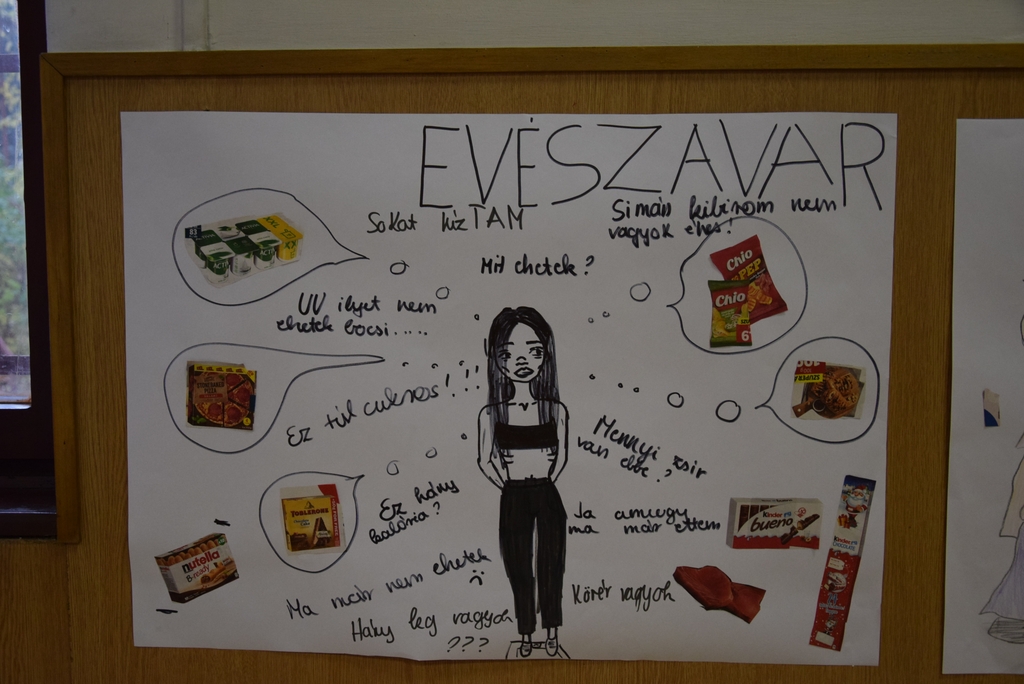 EVÉSZAVAR
Sokat hízTAM
Simán kibírom nem
vagyok éhes!
Mit ehetek?
UV ilyet nem
ehetek bocsi.....
Chio
Chio
6
Ez túl cukros!!!!
Mennyi zsír
van ebbe?
TOBLERONE
Ez hány
kalória?
Ja amúgy
ma már ettem
Kinder
bueno
Kinder
nutella
B-ready
Ma már nem ehetek
Hány kg vagyok
???
Kövér vagyok